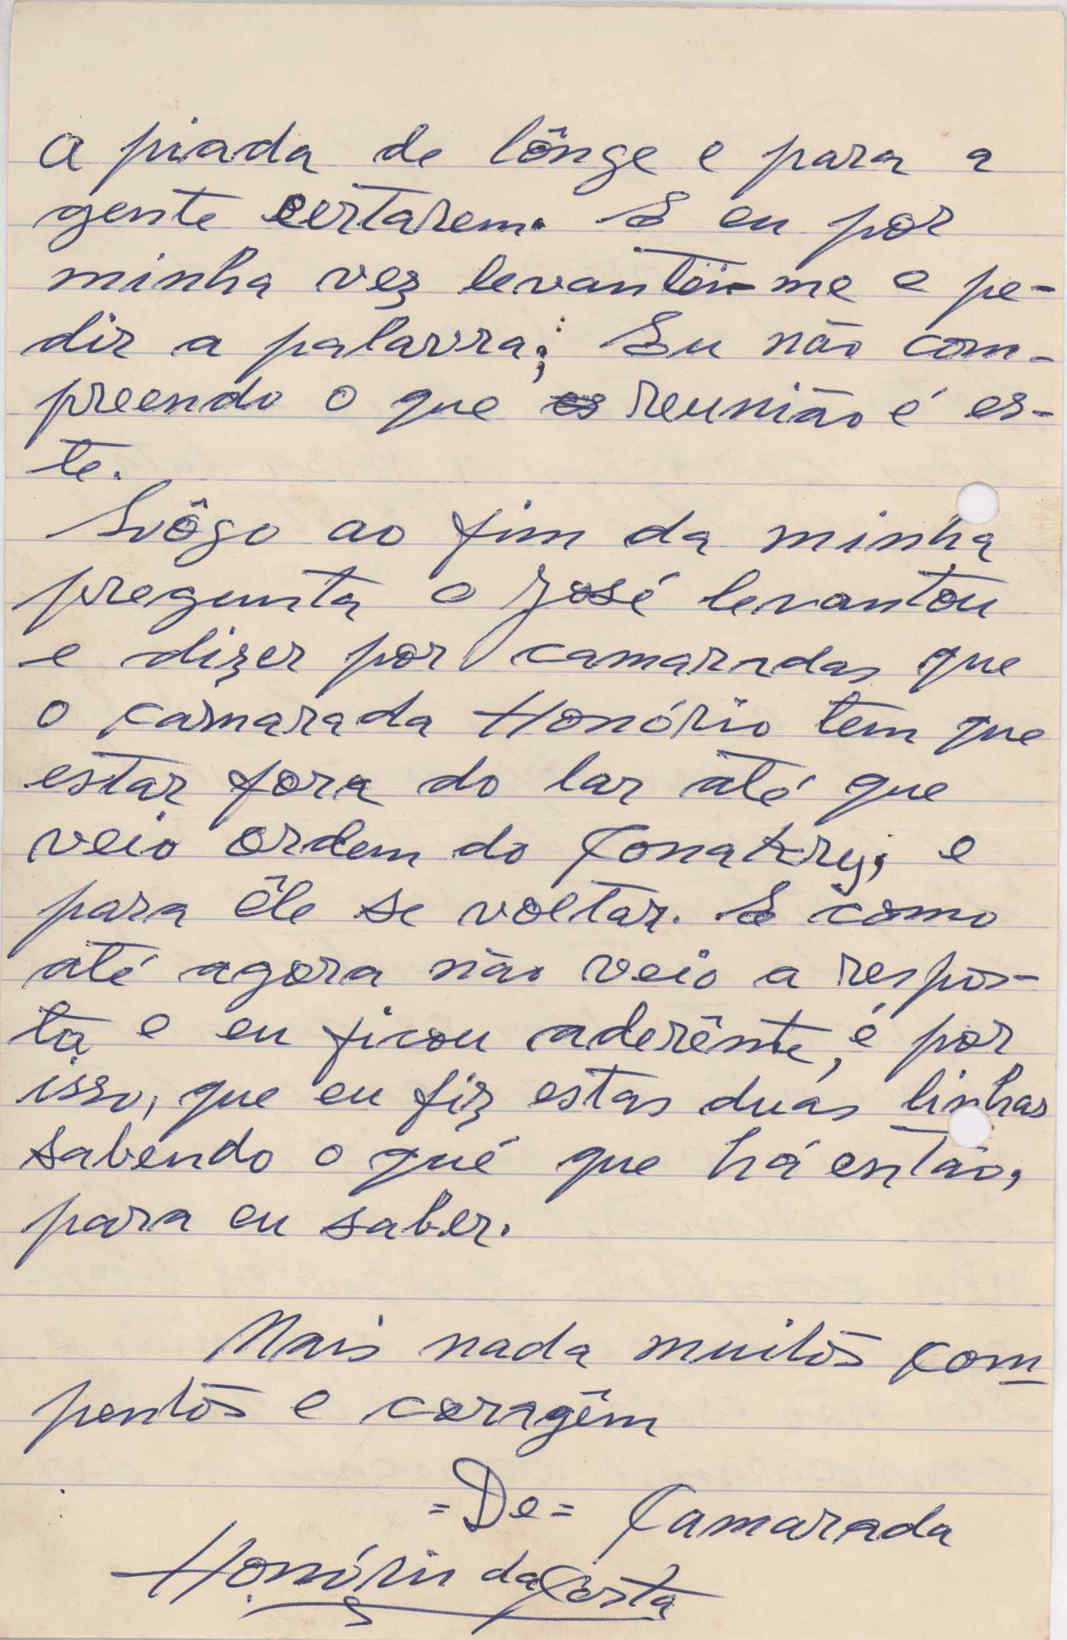 a piada de lônge e para a
gente certarem. E eu por
minha vez levantou-me e pe-
dir a palavra; Eu não com-
preendo o que reunião é es-
te.
Lôgo ao fim da minha
pregunta o José levantou
e dizer por camaradas que
o camarada Honório tem que
estar fora do lar até que
veio ordem do Conakry; e
para êle se voltar. E como
até agora não veio a respos-
ta e eu ficou aderênte, é por
isso, que eu fiz estas duas linhas
sabendo o qué que há então,
para eu saber.
Mais nada muitos com
pontos e coragêm
=De= Camarada
Honório da Costa